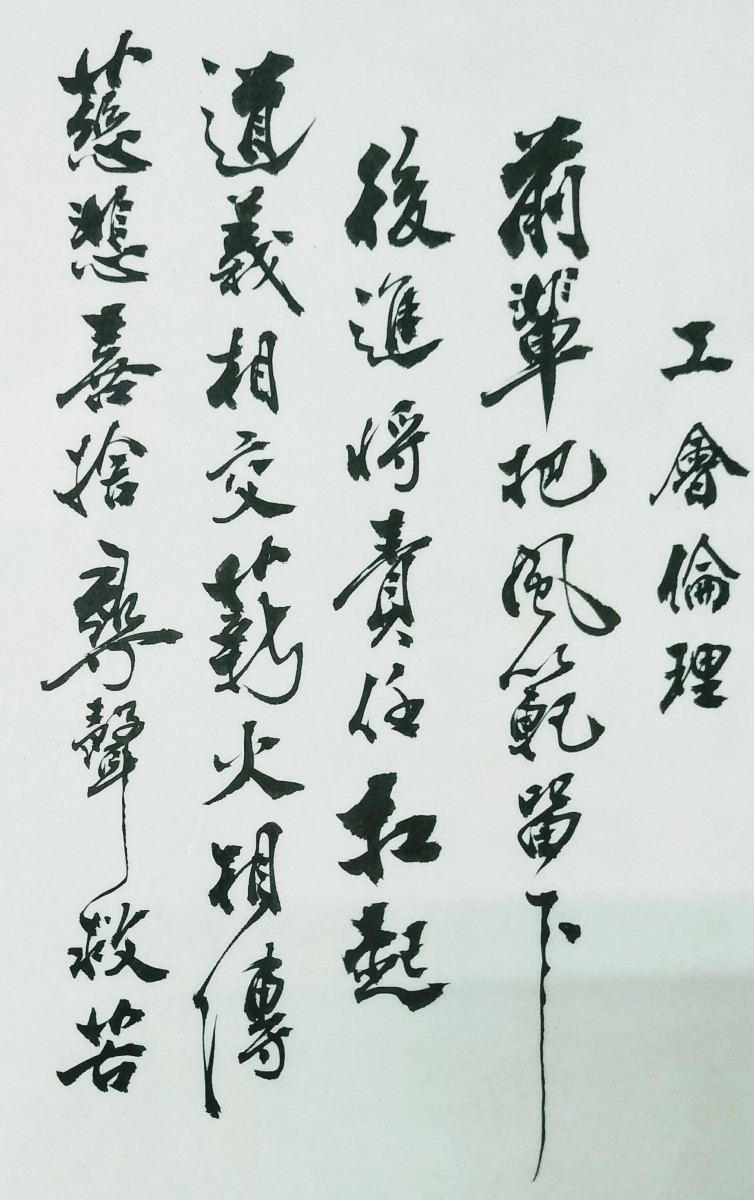 工會倫理
前輩把風範留下
後進將責任扛起
道義相交薪火相傳
慈悲喜捨尋聲救苦